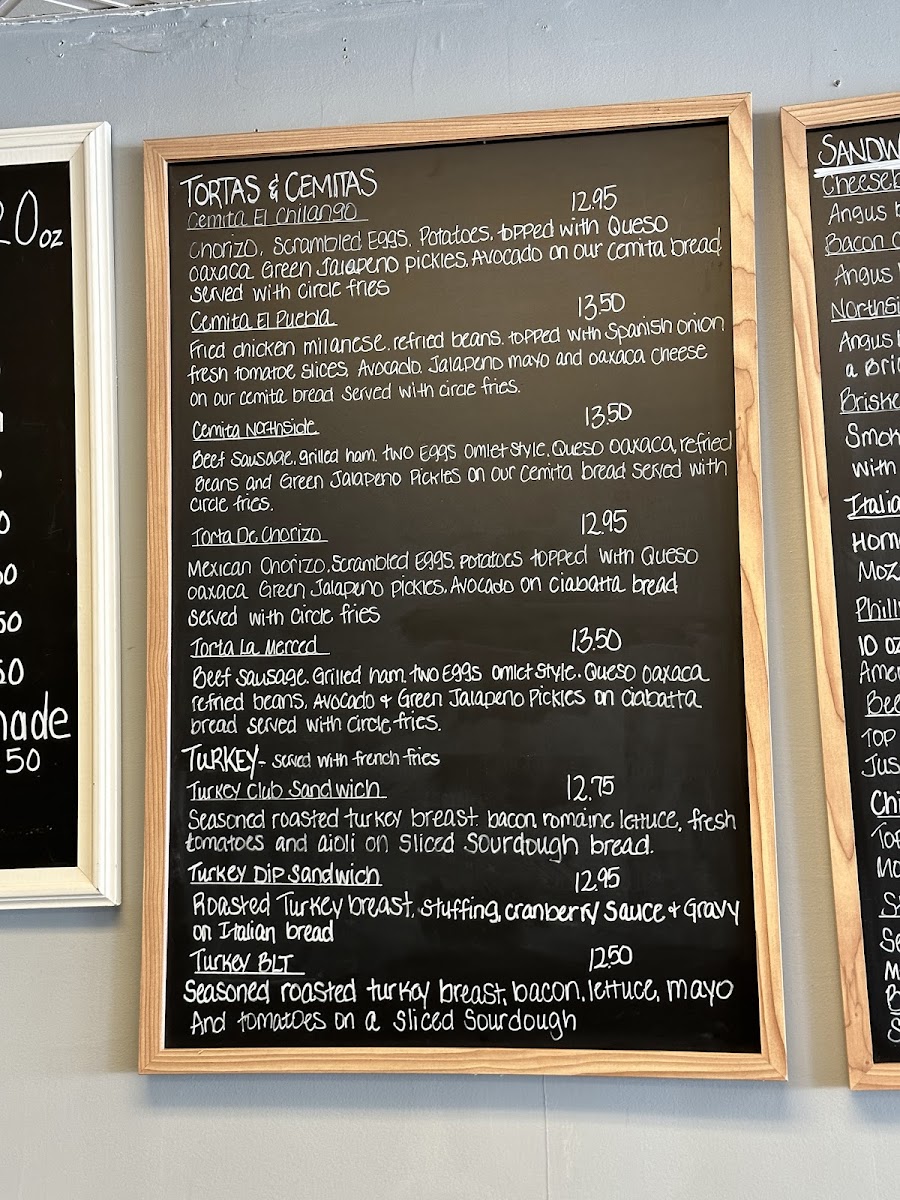 20oz
0
50
50
50
made
50
TORTAS & CEMITAS
Cemita El Chilango 12.95
Chorizo, Scrambled Eggs, Potatoes, topped with Queso
oaxaca Green Jalapeno pickles, Avocado on our cemita bread
served with circle fries
Cemita El Puebla 13.50
Fried chicken milanese, refried beans, topped with Spanish onion
fresh tomatoe slices, Avocado, Jalapeno mayo and oaxaca cheese
on our cemita bread served with circle fries.
Cemita Northside 13.50
Beef Sausage, grilled ham, two Eggs omlet style, Queso oaxaca, refried
Beans and Green Jalapeno Pickles on our cemita bread served with
circle fries.
Torta De Chorizo 12.95
Mexican Chorizo, Scrambled Eggs, potatoes topped with Queso
oaxaca Green Jalapeno pickles, Avocado on ciabatta bread
served with circle fries
Torta La Merced 13.50
Beef Sausage, Grilled ham, two Eggs omlet style, Queso oaxaca
refried beans, Avocado + Green Jalapeno Pickles on ciabatta
bread served with circle fries.
TURKEY - served with french fries
Turkey Club Sandwich 12.75
Seasoned roasted turkey breast, bacon, romaine lettuce, fresh
tomatoes and aioli on sliced Sourdough bread.
Turkey Dip Sandwich 12.95
Roasted Turkey breast, stuffing, cranberry Sauce + Gravy
on Italian bread
Turkey BLT 12.50
Seasoned roasted turkey breast, bacon, lettuce, mayo
And tomatoes on a sliced Sourdough
SANDW
Cheeseb
Angus b
Bacon C
Angus
Northsi
Angus b
a Bri
Briske
Smok
with
Italia
Hom
Moz
Philly
10 oz
Amer
Bee
Top
Jus
Chi